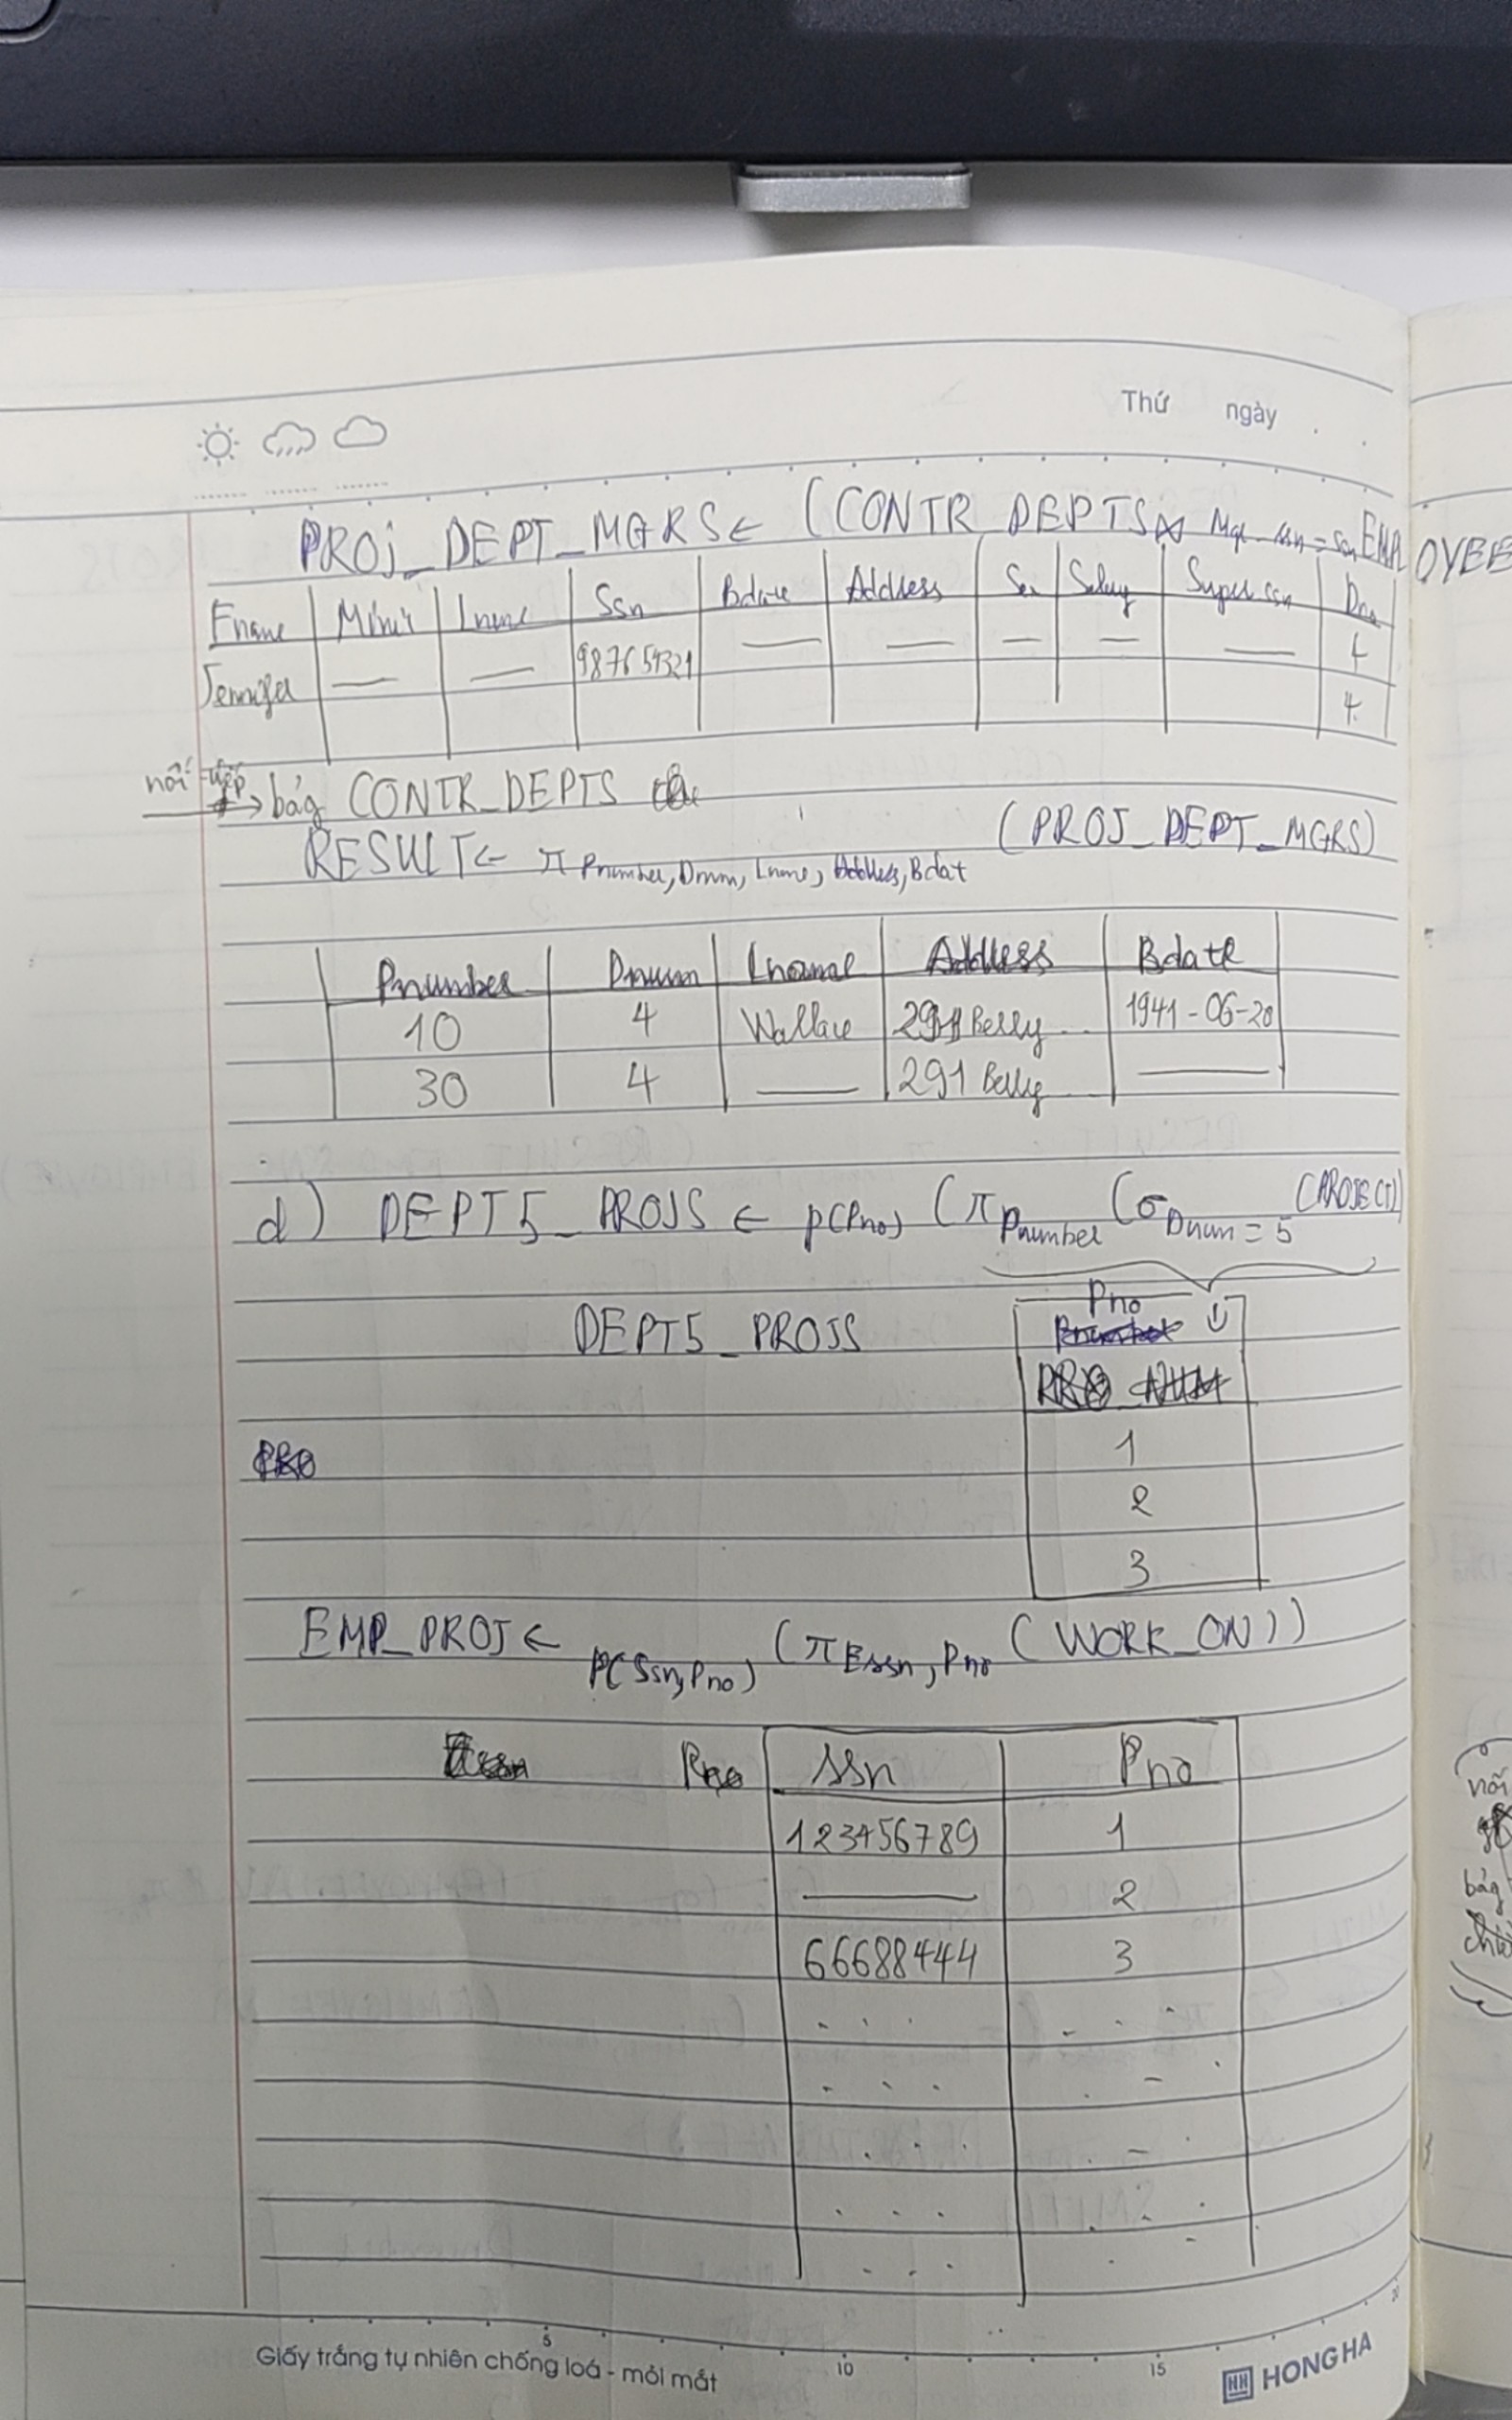 Thứ ngày
PROJ_DEPT_MGRS ← (CONTR_DEPTS ⋈ Mgr_ssn = Ssn EMPLOYEE
Fname Minit Lname Ssn Bdate Address Sex Salary Super_ssn Dno
Jennifer — — 987654321 — — — — — 4
4
nối tiếp → bảg CONTR_DEPTS
RESULT ← π Pnumber, Dnum, Lname, Address, Bdat (PROJ_DEPT_MGRS)
Pnumber Dnum Lname Address Bdate
10 4 Wallace 291 Belly .. 1941-06-20
30 4 — 291 Belly —
d) DEPT5_PROJS ← ρ(Pno) (π Pnumber (σ Dnum = 5 (PROJECT))
DEPT5_PROJS
Pno
1
2
3
EMP_PROJ ← ρ(Ssn, Pno) (π Essn, Pno (WORK_ON))
Ssn Pno
123456789 1
— 2
66688444 3
nối
bảg
5 10 15 20
Giấy trắng tự nhiên chống loá - mỏi mắt
HH HONG HA